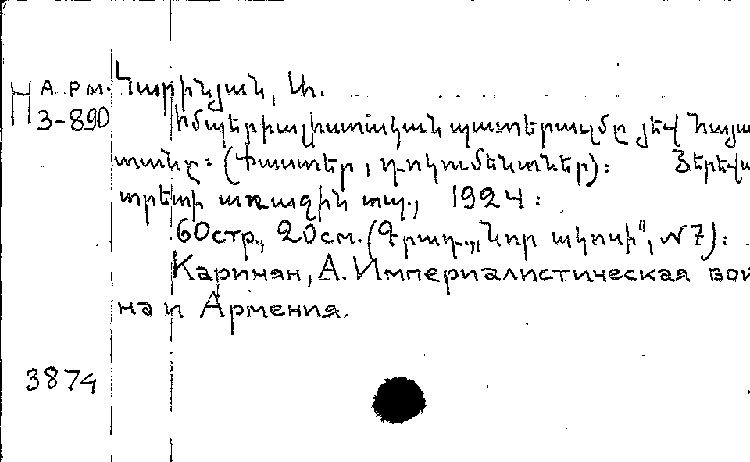 Н Арм. Կարինյան, Ա.
3-890 Իմպերիալիստական պատերազմը յեվ Հայա
տանը: (Փաստեր, դոկումենտներ): Յերեվա
պետի առաջին տպ., 1924:
60стр., 20см. (Գրադ. „Նոր ակոսի", №7):
Каринян, А. Империалистическая вой
на и Армения.
3874